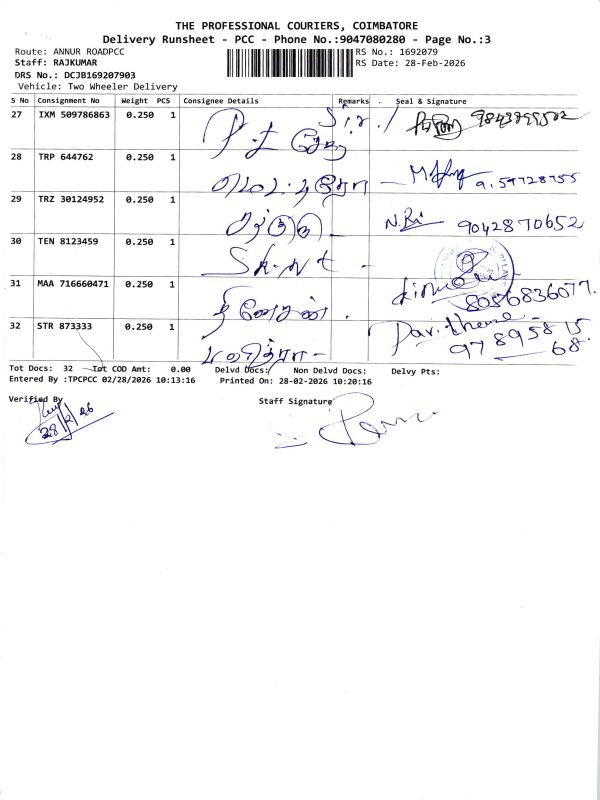 THE PROFESSIONAL COURIERS, COIMBATORE
Delivery Runsheet - PCC - Phone No.:9047080280 - Page No.:3
Route: ANNUR ROADPCC
RS No.: 1692079
Staff: RAJKUMAR
RS Date: 28-Feb-2026
DRS No.: DCJB169207903
Vehicle: Two Wheeler Delivery
S No Consignment No Weight PCS Consignee Details Remarks . Seal & Signature
27 IXM 509786863 0.250 1
28 TRP 644762 0.250 1
29 TRZ 30124952 0.250 1 N.Ri 9042870652
30 TEN 8123459 0.250 1
31 MAA 716660471 0.250 1 தினேசன் . 8056836077.
32 STR 873333 0.250 1 பவித்ரா - 97895815
68.
Tot Docs: 32 Tot COD Amt: 0.00 Delvd Docs: Non Delvd Docs: Delvy Pts:
Entered By :TPCPCC 02/28/2026 10:13:16 Printed On: 28-02-2026 10:20:16
Verified By Staff Signature
28/2/26